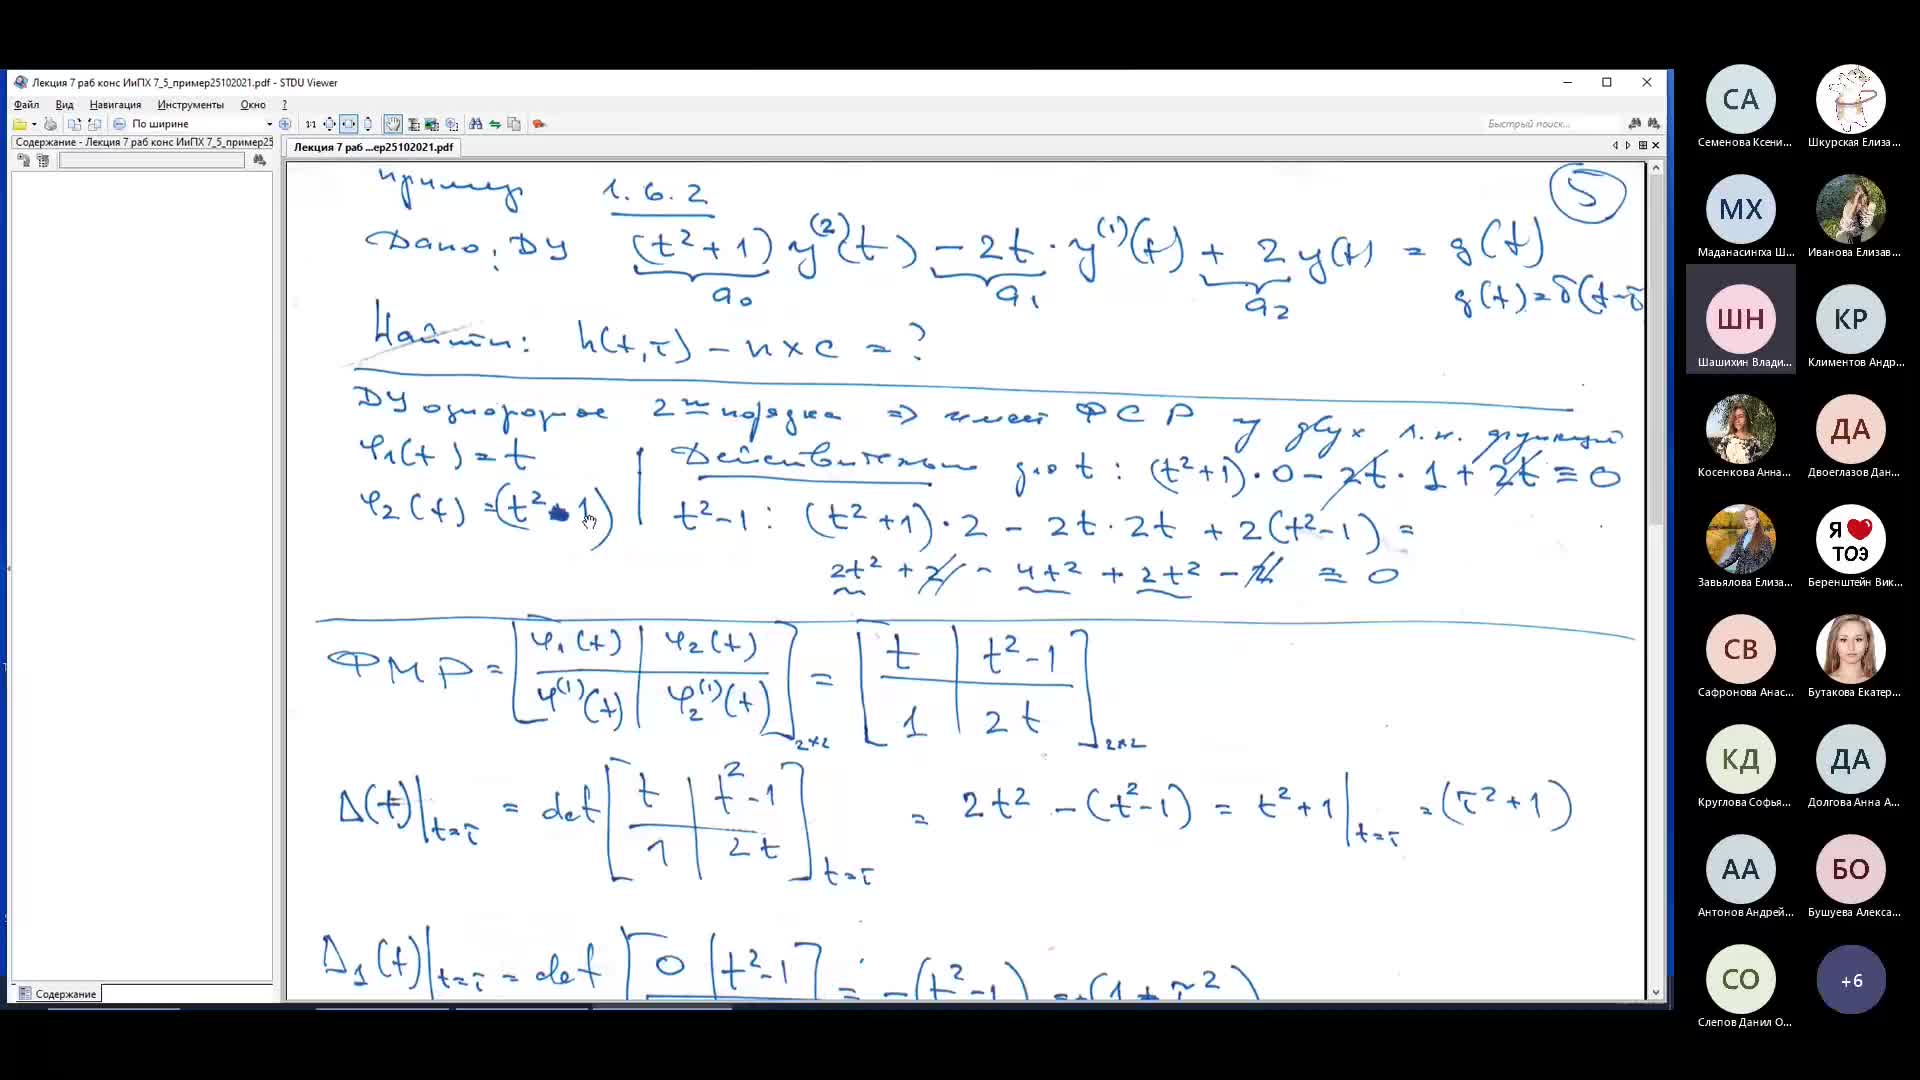 Лекция 7 раб конс ИиПХ 7_5_пример25102021.pdf - STDU Viewer
Файл Вид Навигация Инструменты Окно ?
По ширине
1:1
Быстрый поиск...
Содержание - Лекция 7 раб конс ИиПХ 7_5_пример25
Лекция 7 раб ...ер25102021.pdf
пример 1.6.2
5
Дано: ДУ (t²+1) y⁽²⁾(t) - 2t · y⁽¹⁾(t) + 2 y(t) = g(t)
a₀ a₁ a₂ g(t) = δ(t-τ
Найти: h(t,τ) - ИХС = ?
ДУ однородное 2го порядка ⇒ имеет ФСР у двух л.н. функций
φ₁(t) = t
Действительно для t : (t²+1)·0 - 2t·1 + 2t ≡ 0
φ₂(t) = (t² - 1)
t²-1 : (t²+1)·2 - 2t·2t + 2(t²-1) =
2t² + 2 - 4t² + 2t² - 2 ≡ 0
ФМР = [φ₁(t) | φ₂(t)
φ⁽¹⁾(t) | φ₂⁽¹⁾(t)]₂ₓ₂ = [t | t²-1
1 | 2t]₂ₓ₂
Δ(t)|t=τ = det [t | t²-1
1 | 2t] t=τ = 2t² - (t²-1) = t²+1|t=τ = (τ²+1)
Δ₁(t)|t=τ = det [0 | t²-1] = -(t²-1) = +(1+τ²)
Содержание
СА
Семенова Ксени...
Шкурская Елиза...
МХ
Маданасингха Ш...
Иванова Елизав...
ШН
Шашихин Влади...
КР
Климентов Андр...
Косенкова Анна...
ДА
Двоеглазов Дан...
Завьялова Елиза...
Я ТОЭ
Беренштейн Вик...
СВ
Сафронова Анас...
Бутакова Екатер...
КД
Круглова Софья...
ДА
Долгова Анна А...
АА
Антонов Андрей...
БО
Бушуева Алекса...
СО
Слепов Данил О...
+6